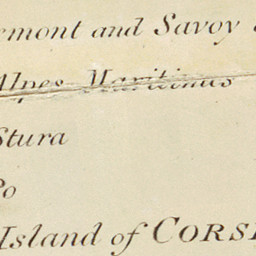 emont and Savoy
Alpes Maritimes
Stura
Po
Island of CORSI